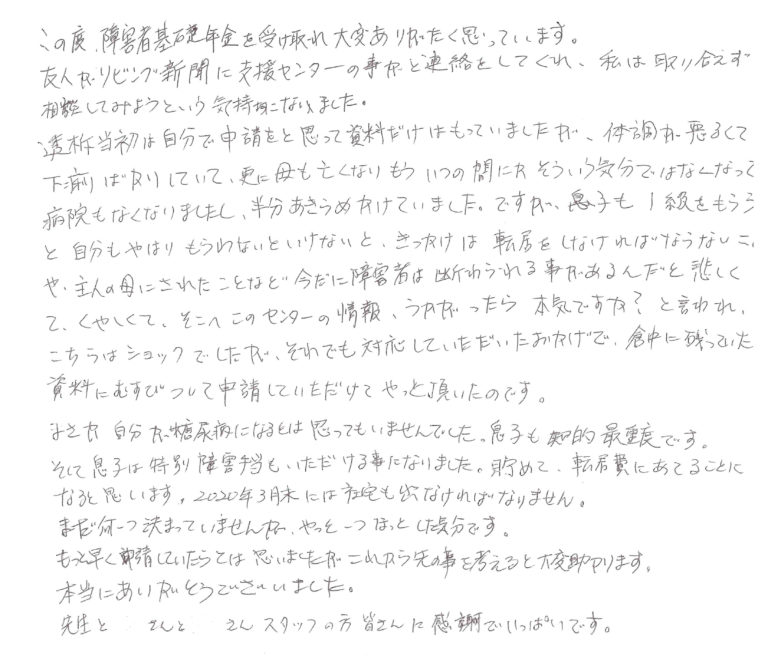 この度、障害者基礎年金を受け取れ大変ありがたく思っています。
友人がリビング新聞に支援センターの事がと連絡をしてくれ、私は取り合えず
相談してみようという気持になりました。
透析当初は自分で申請をと思って資料だけはもっていましたが、体調が悪るくて
下痢ばかりしていて、更に母も亡くなりもういつの間にかそういう気分ではなくなって
病院もなくなりましたし、半分あきらめかけていました。ですが、息子も1級をもらう
と自分もやはりもらわないといけないと、きっかけは転居をしなければならないこ
や、主人の母にされたことなど今だに障害者は断わられる事があるんだと悲しく
て、くやしくて、そこへこのセンターの情報、うかがったら本気ですか?と言われ、
こちらはショックでしたが、それでも対応していただいたおかげで、倉中に残っていた
資料にむすびついて申請していただけてやっと頂いたのです。
まさか自分が糖尿病になるとは思ってもいませんでした。息子も知的最重度です。
そして息子は特別障害手当も、いただける事になりました。貯めて、転居費にあてることに
なると思います。2020年3月末には社宅も出なければなりません。
まだ何一つ決まっていませんが、やっと一つほっとした気分です。
もっと早く申請していたらとは思いましたがこれから先の事を考えると大変助かります。
本当にありがとうございました。
先生と さんと さんスタッフの方皆さんに感謝でいっぱいです。